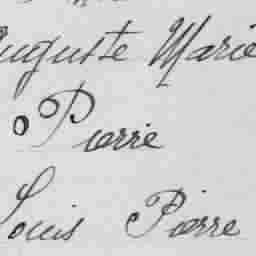 Auguste Marie
Pierre
Louis Pierre